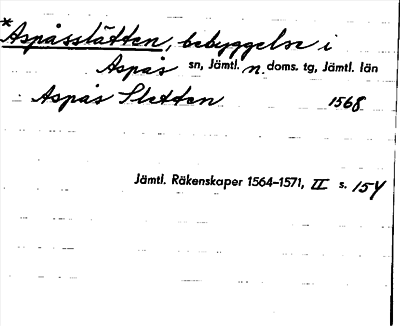 *Aspåsslätten, bebyggelse i
Aspås sn, Jämtl. n. doms. tg, Jämtl. län
Aspås Sletten 1568
Jämtl. Räkenskaper 1564–1571, II s. 154